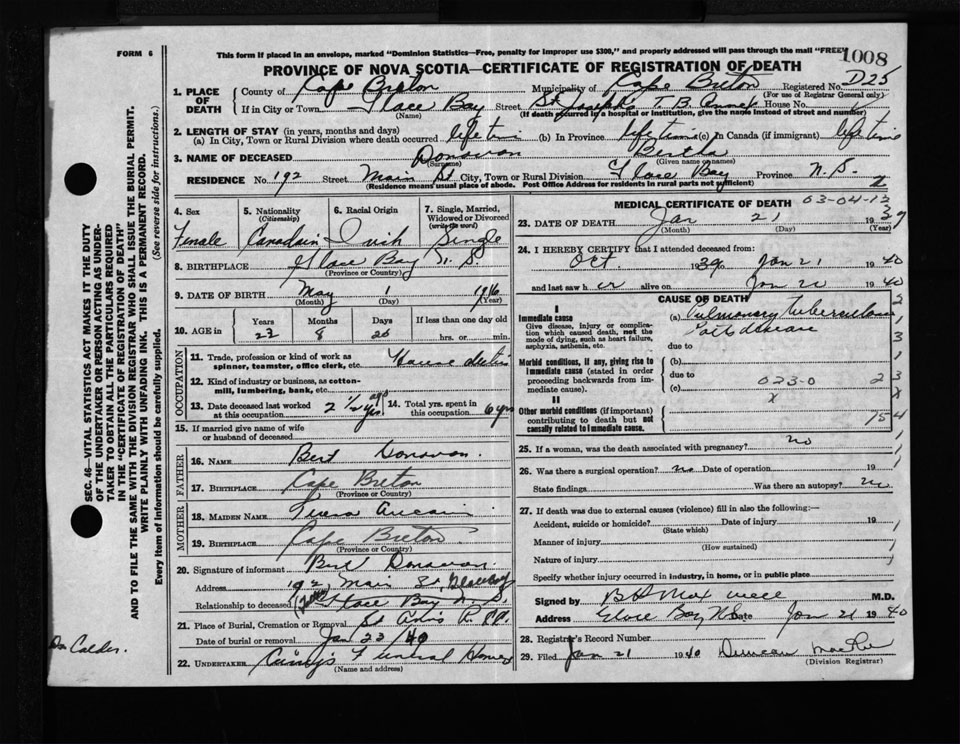 FORM 6
This form if placed in an envelope, marked "Dominion Statistics—Free, penalty for improper use $300," and properly addressed will pass through the mail "FREE"
1008
PROVINCE OF NOVA SCOTIA—CERTIFICATE OF REGISTRATION OF DEATH
1. PLACE OF DEATH
County of Cape Breton Municipality of Cape Breton Registered No. D25
(For use of Registrar General only)
If in City or Town Glace Bay Street St Josephs T. B. Annex House No.
(Name) (If death occurred in a hospital or institution, give the name instead of street and number)
2. LENGTH OF STAY (in years, months and days)
(a) In City, Town or Rural Division where death occurred life time (b) In Province life time (c) In Canada (if immigrant) life time
3. NAME OF DECEASED Donovan Bertha
(Surname) (Given name or names)
RESIDENCE No. 192 Street Main St City, Town or Rural Division Glace Bay Province N. S.
(Residence means usual place of abode. Post Office Address for residents in rural parts not sufficient)
2
4. Sex Female
5. Nationality (Citizenship) Canadain
6. Racial Origin Irish
7. Single, Married, Widowed or Divorced (write the word) Single
8. BIRTHPLACE Glace Bay N. S.
(Province or Country)
9. DATE OF BIRTH May 1 1916
(Month) (Day) (Year)
10. AGE in Years Months Days If less than one day old
23 8 20 hrs. or min.
OCCUPATION
11. Trade, profession or kind of work as spinner, teamster, office clerk, etc. House duties
12. Kind of industry or business, as cotton-mill, lumbering, bank, etc.
13. Date deceased last worked at this occupation 2 1/2 yrs. ago
14. Total yrs. spent in this occupation 6 yrs
15. If married give name of wife or husband of deceased
FATHER
16. NAME Bert Donovan.
17. BIRTHPLACE Cape Breton
(Province or Country)
MOTHER
18. MAIDEN NAME
19. BIRTHPLACE Cape Breton
(Province or Country)
20. Signature of informant Bert Donovan.
Address 192 Main St, Glace Bay
Relationship to deceased (Father) Glace Bay N. S.
21. Place of Burial, Cremation or Removal
Date of burial or removal Jan 23/40
22. UNDERTAKER Curry's Funeral Home
(Name and address)
MEDICAL CERTIFICATE OF DEATH 03-04-12
23. DATE OF DEATH Jan 21 1939
(Month) (Day) (Year)
24. I HEREBY CERTIFY that I attended deceased from:
Oct. 1939 to Jan 21 1940
and last saw h er alive on Jan 20 1940
CAUSE OF DEATH
I
Immediate cause
Give disease, injury or complication which caused death, not the mode of dying, such as heart failure, asphyxia, asthenia, etc.
(a) Pulmonary Tuberculosis
due to
Morbid conditions, if any, giving rise to immediate cause (stated in order proceeding backwards from immediate cause).
(b)
due to
(c) 023-0
x
II
Other morbid conditions (if important) contributing to death but not causally related to immediate cause.
154
25. If a woman, was the death associated with pregnancy? no
26. Was there a surgical operation? no Date of operation 19
State findings Was there an autopsy? no
27. If death was due to external causes (violence) fill in also the following:—
Accident, suicide or homicide? Date of injury 19
(State which)
Manner of injury
(How sustained)
Nature of injury
Specify whether injury occurred in industry, in home, or in public place
Signed by B H Maxwell M.D.
Address Glace Bay N.S. Date Jan 21 1940
28. Registrar's Record Number
29. Filed Jan 21 1940 Duncan MacRae
(Division Registrar)
SEC. 46—VITAL STATISTICS ACT MAKES IT THE DUTY
OF THE UNDERTAKER OR PERSON ACTING AS UNDER-
TAKER TO OBTAIN ALL THE PARTICULARS REQUIRED
IN THE "CERTIFICATE OF REGISTRATION OF DEATH"
AND TO FILE THE SAME WITH THE DIVISION REGISTRAR WHO SHALL ISSUE THE BURIAL PERMIT.
WRITE PLAINLY WITH UNFADING INK. THIS IS A PERMANENT RECORD.
Every item of information should be carefully supplied. (See reverse side for instructions.)
Dr Calder.